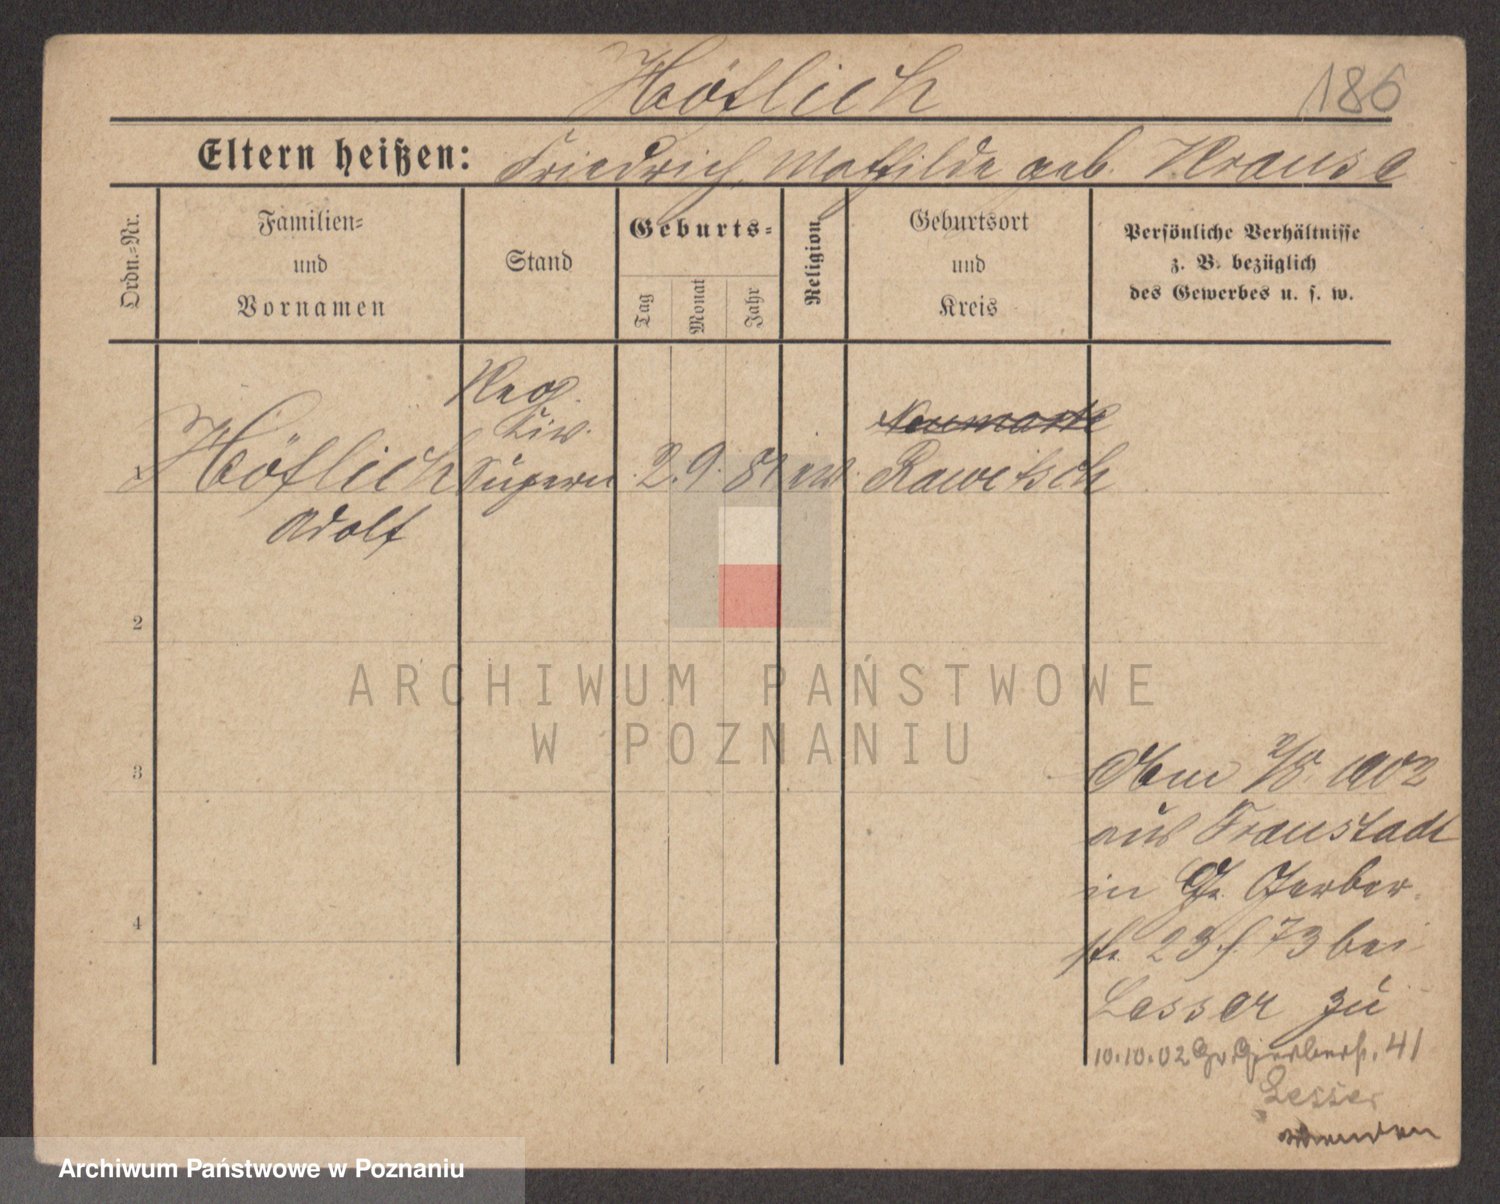 Höflich
186
Eltern heißen: Friedrich, Mathilde geb. Krause
Ordn.-Nr.
Familien-
und
Vornamen
Stand
Geburts-
Tag
Monat
Jahr
Religion
Geburtsort
und
Kreis
Persönliche Verhältnisse
z. B. bezüglich
des Gewerbes u. s. w.
Reg.
Civ.
Neumarkt
1 Höflich Supern. 2. 9. 81 ev. Rawitsch
Adolf
2
ARCHIWUM PAŃSTWOWE
W POZNANIU
3
1902
aus Fraustadt
in Gr. Gerber
str. 23 f. 73 bei
Lesser zu
10.10.02 Gr. Gerberstr. 41
Lesser
4
Archiwum Państwowe w Poznaniu